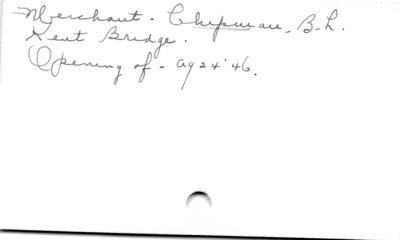 Merchant. Chapman, B.L.
Kent Bridge.
Opening of - ag 24 '46.